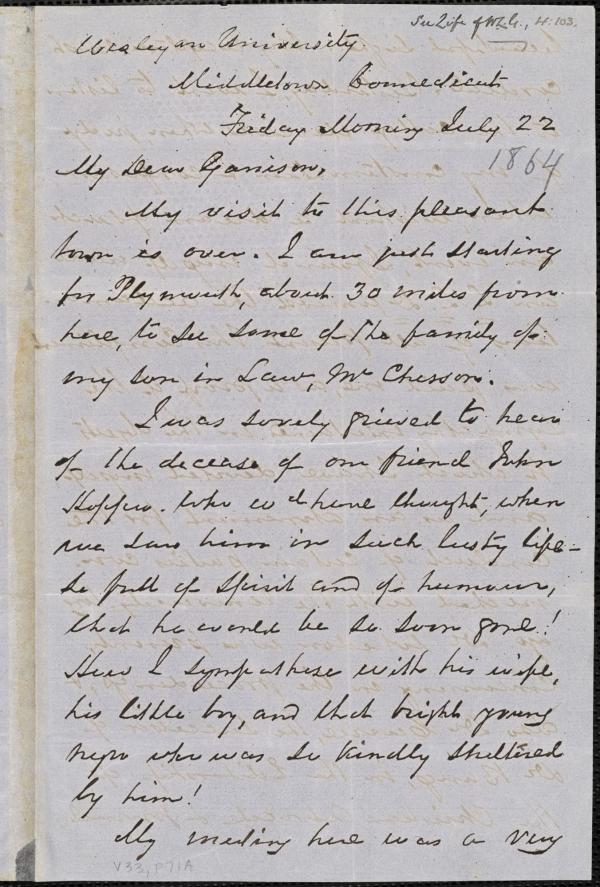 See Life of W.L.G., 4:103.
Wesleyan University
Middletown Connecticut
Friday Morning July 22
1864
My Dear Garrison,
My visit to this pleasant
town is over. I am just starting
for Plymouth, about 30 miles from
here, to see some of the family of
my son in Law, Mr Chesson.
I was sorely grieved to hear
of the decease of our friend John
Hopper. Who wd have thought, when
we saw him in such lusty life –
so full of spirit and of humour,
that he would be so soon gone!
How I sympathise with his wife,
his little boy, and that bright young
negro who was so kindly sheltered
by him!
My meeting here was a very
V33, P71A